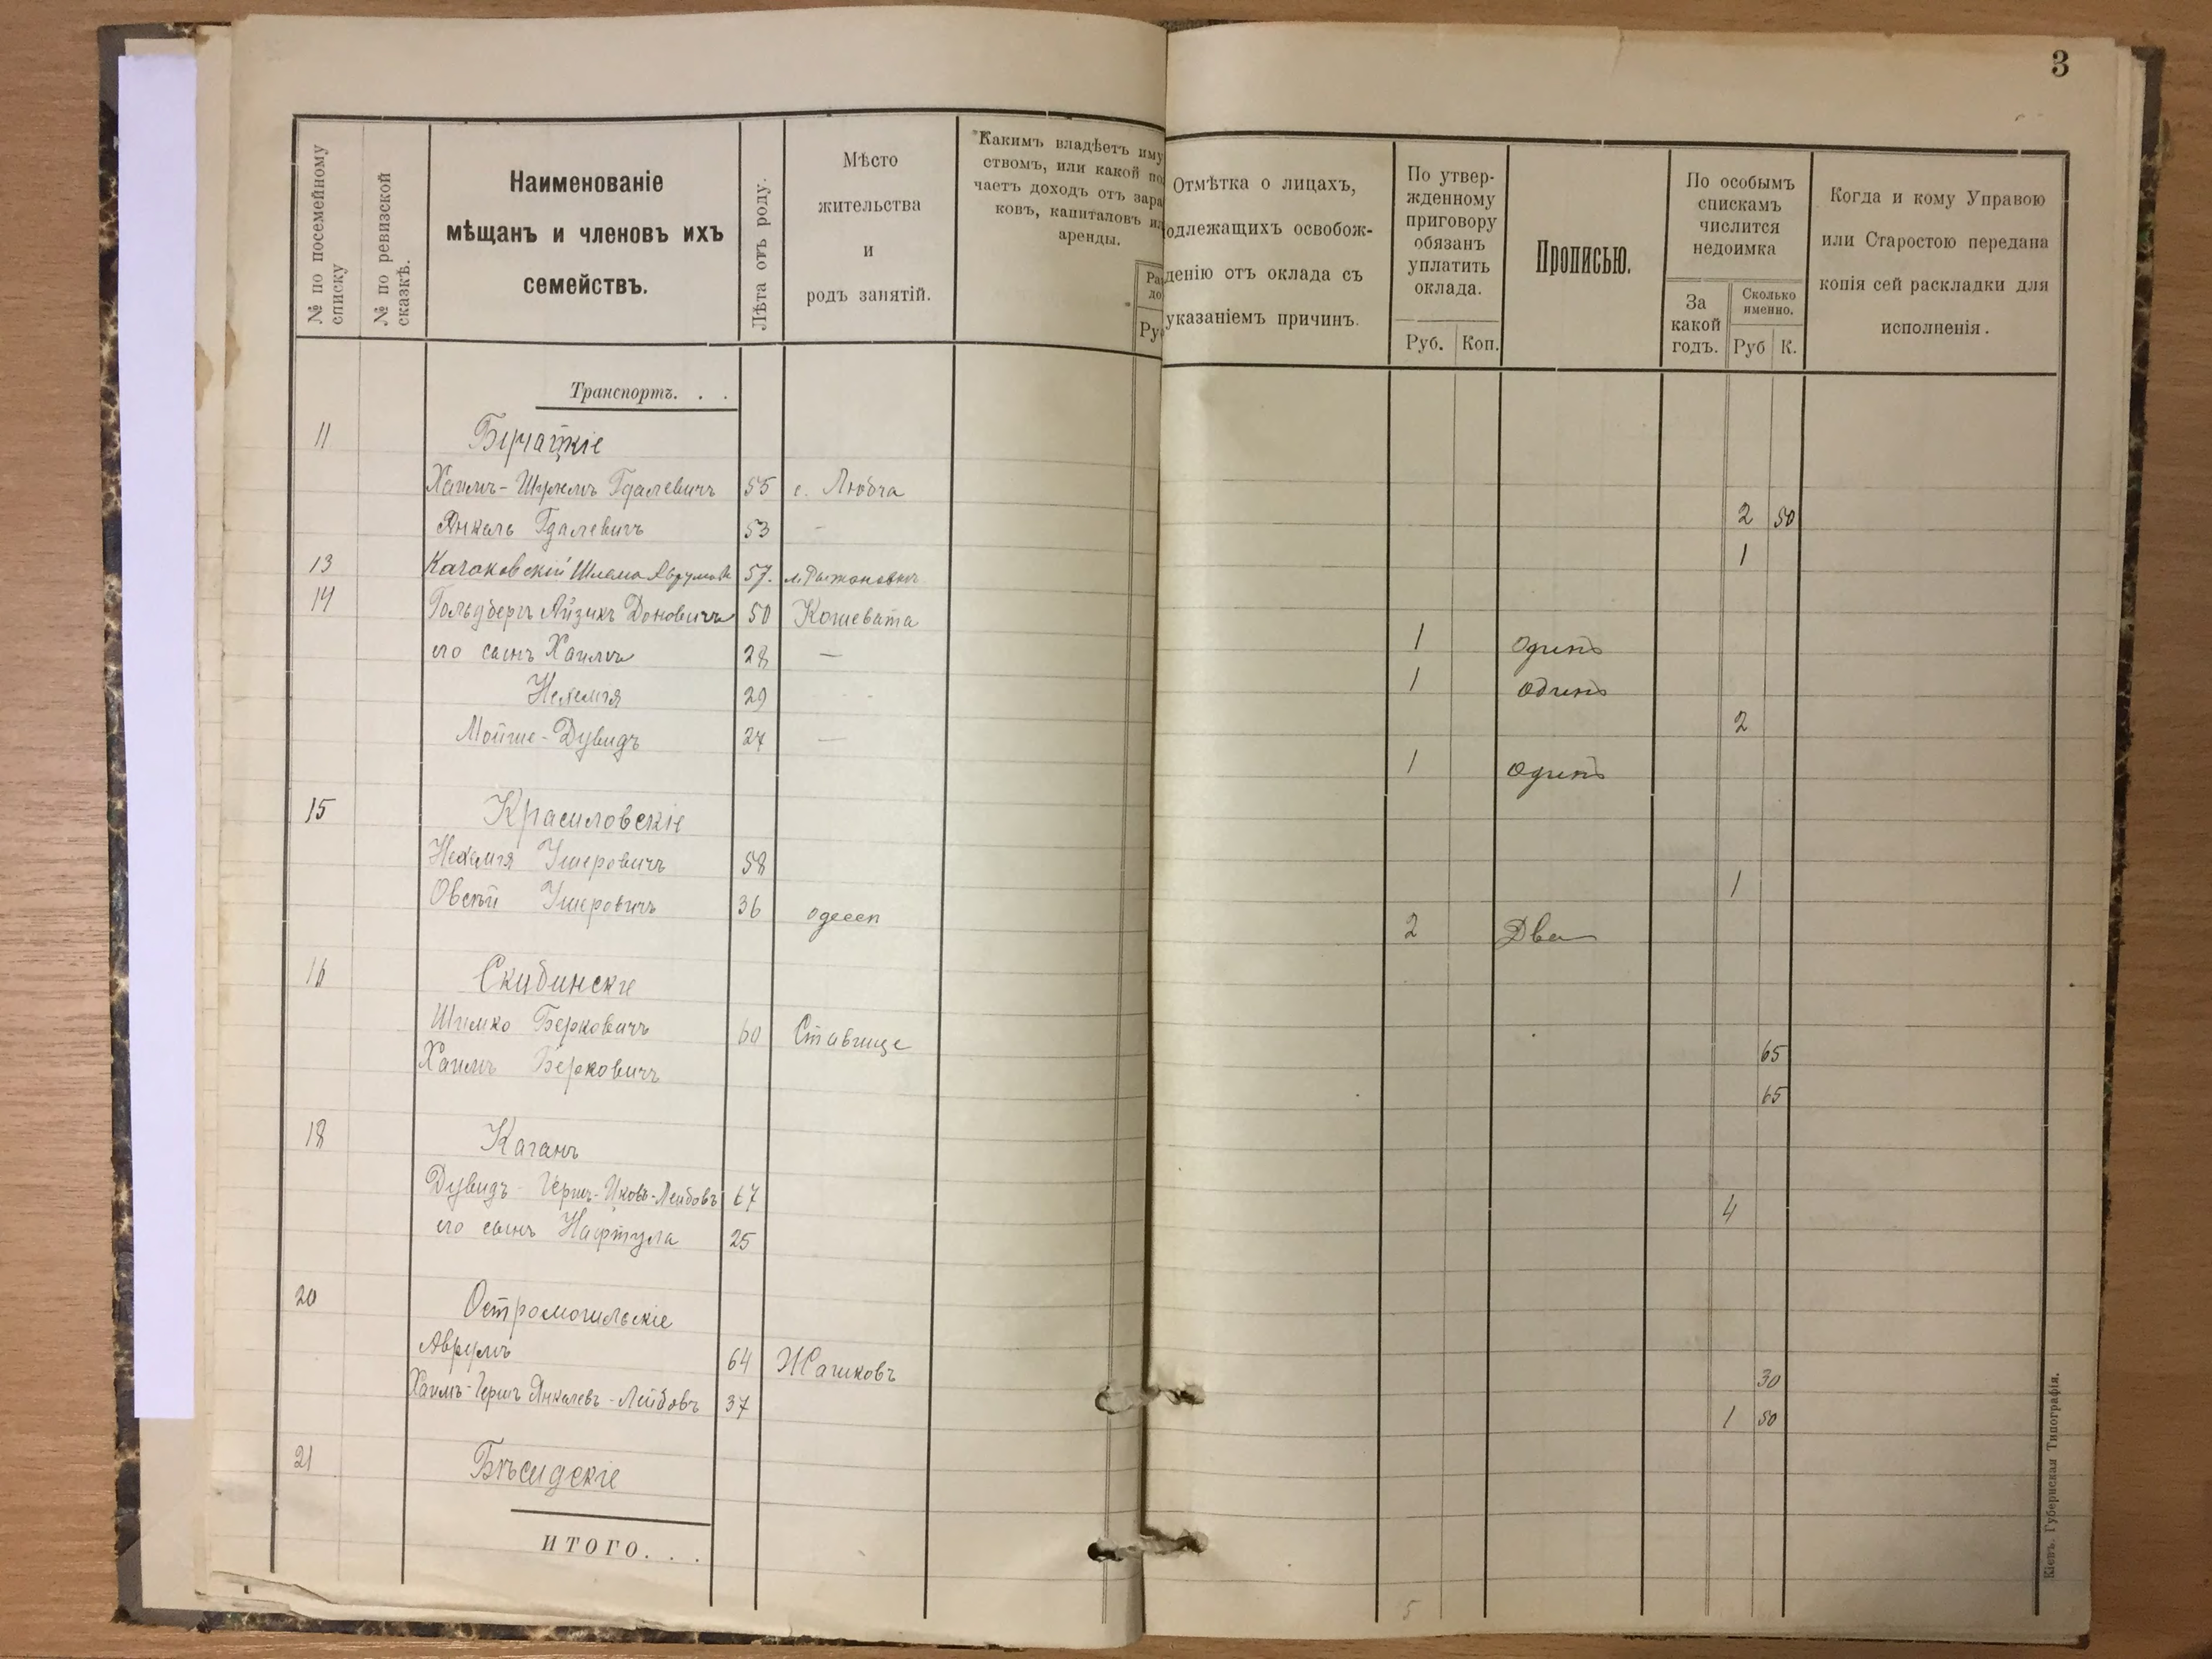 3
№ по посемейному списку
№ по ревизской сказкѣ.
Наименованіе
мѣщанъ и членовъ ихъ
семействъ.
Лѣта отъ роду.
Мѣсто
жительства
и
родъ занятій.
Какимъ владѣетъ иму
ствомъ, или какой по
чаетъ доходъ отъ зара
ковъ, капиталовъ ил
аренды.
Ра
до
Ру
Отмѣтка о лицахъ,
одлежащихъ освобож-
денію отъ оклада съ
указаніемъ причинъ.
По утвер-
жденному
приговору
обязанъ
уплатить
оклада.
Руб. Коп.
Прописью.
По особымъ
спискамъ
числится
недоимка
За
какой
годъ.
Сколько
именно.
Руб К.
Когда и кому Управою
или Старостою передана
копія сей раскладки для
исполненія.
Транспортъ. . .
11 Бучацкіе
Хаимъ-Шулемъ Гдалевичъ 55 с. Любча 2 50
Янкель Гдалевичъ 53 - 1
13 Качаковскій Шлема 57. м. Рыжановка
14 Гольдбергъ Айзикъ Доновичъ 50 Кошевата 1 Одинъ
его сынъ Хаимъ 28 — 1 одинъ
Нехемія 29 2
Мойше-Дувидъ 27 — 1 одинъ
15 Красиловскіе
Нехемія Ушеровичъ 58 1
Овсѣй Ушеровичъ 36 одесса 2 Два
16 Скибинскіе
Шимко Берковичъ 60 Ставище 65
Хаимъ Берковичъ 65
18 Каганъ
Дувидъ-Гершъ-Ицковъ-Лейбовъ 67 4
его сынъ Нафтула 25
20 Остромогильскіе
Аврумъ 64 Жашковъ 30
Хаимъ-Гершъ Янкелевъ-Лейбовъ 37 1 50
21 Бѣсидскіе
ИТОГО. . .
5
Кіевъ. Губернская Типографія.